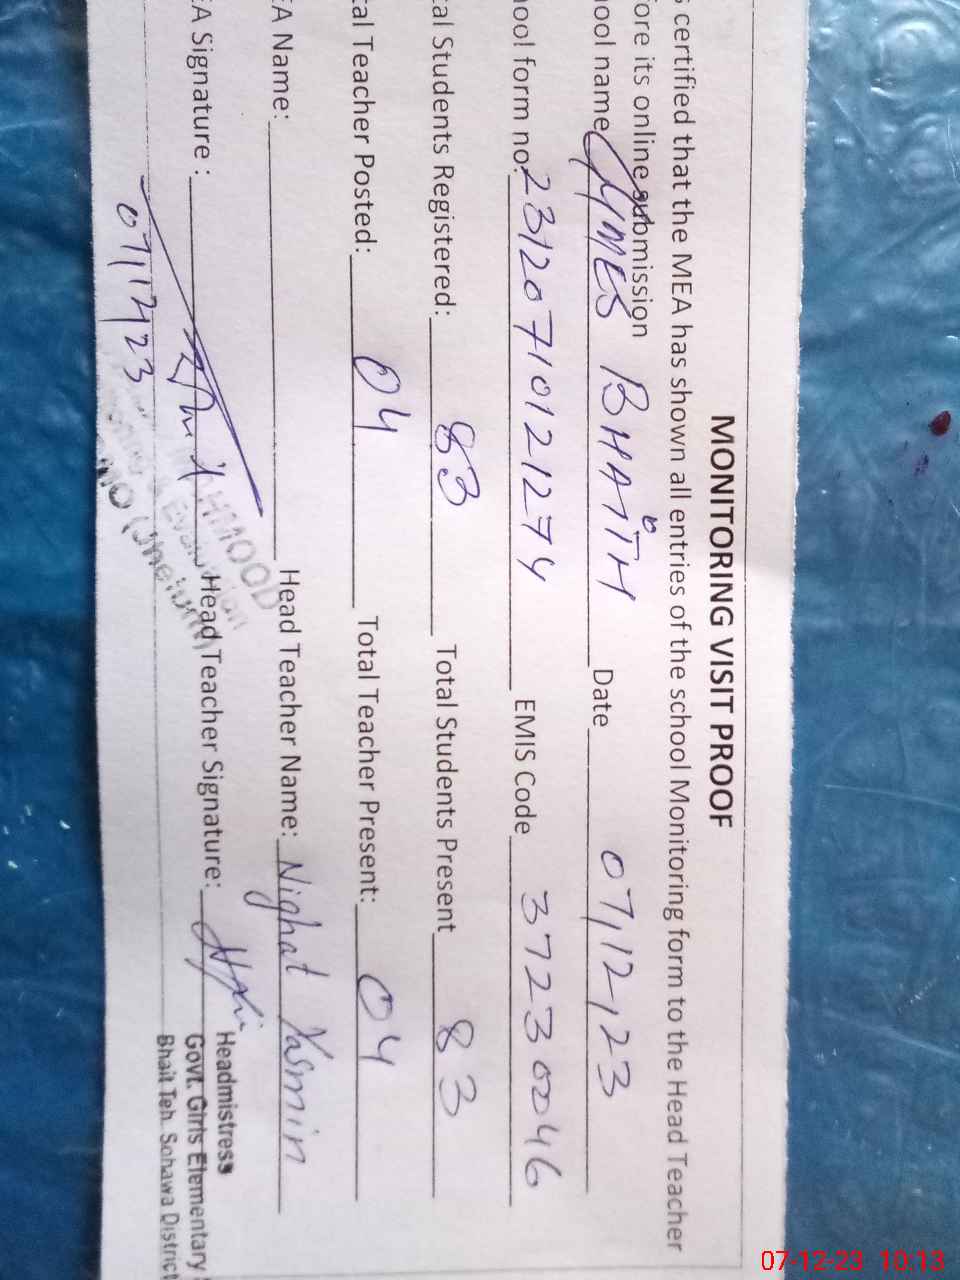 MONITORING VISIT PROOF
certified that the MEA has shown all entries of the school Monitoring form to the Head Teacher
fore its online submission
ool name GGMES BHAITH Date 07/12/23
ool form no: 231207101212744 EMIS Code 37230046
tal Students Registered: 83 Total Students Present 83
tal Teacher Posted: 04 Total Teacher Present: 04
EA Name: Head Teacher Name: Nighat Yasmin
EA Signature : Head Teacher Signature:
07/12/23
HMOOD
Headmistress
Govt. Girls Elementary
Bhait Teh. Sohawa District
07-12-23 10:13